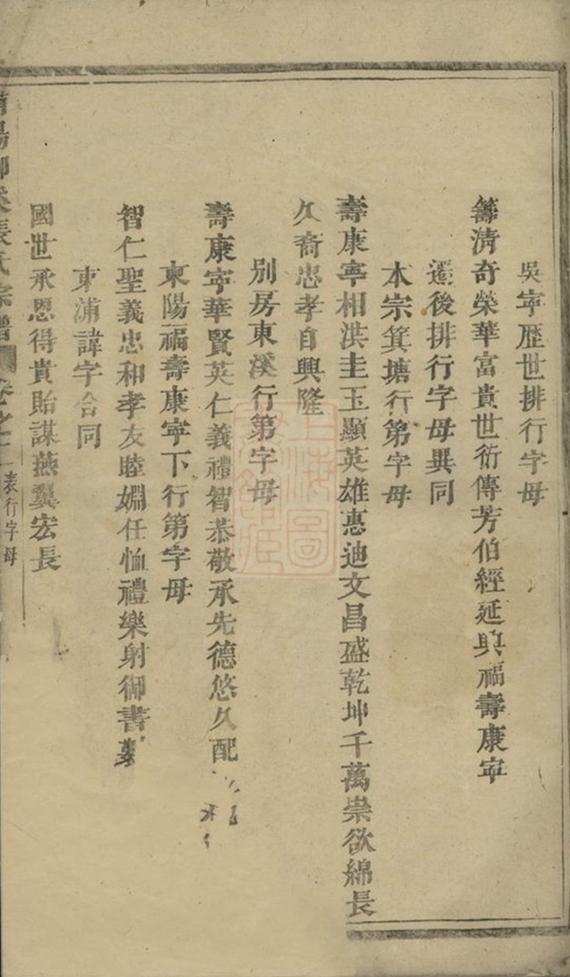 吳寧歷世排行字母
清奇榮華富貴世衍傳芳伯經延與福壽康寧
遷後排行字母異同
本宗箕塘行第字母
壽康寧相洪圭玉顯英雄惠迪文昌盛乾坤千萬崇欲綿長
久裔忠孝自興隆
別房東溪行第字母
壽康寧華賢英仁義禮智恭敬承先德悠久配
東陽福壽康寧下行第字母
智仁聖義忠和孝友睦婣任恤禮樂射御書
東浦諱字合同
國世承恩得貴貽謀燕翼宏長
張氏宗譜 表行字母